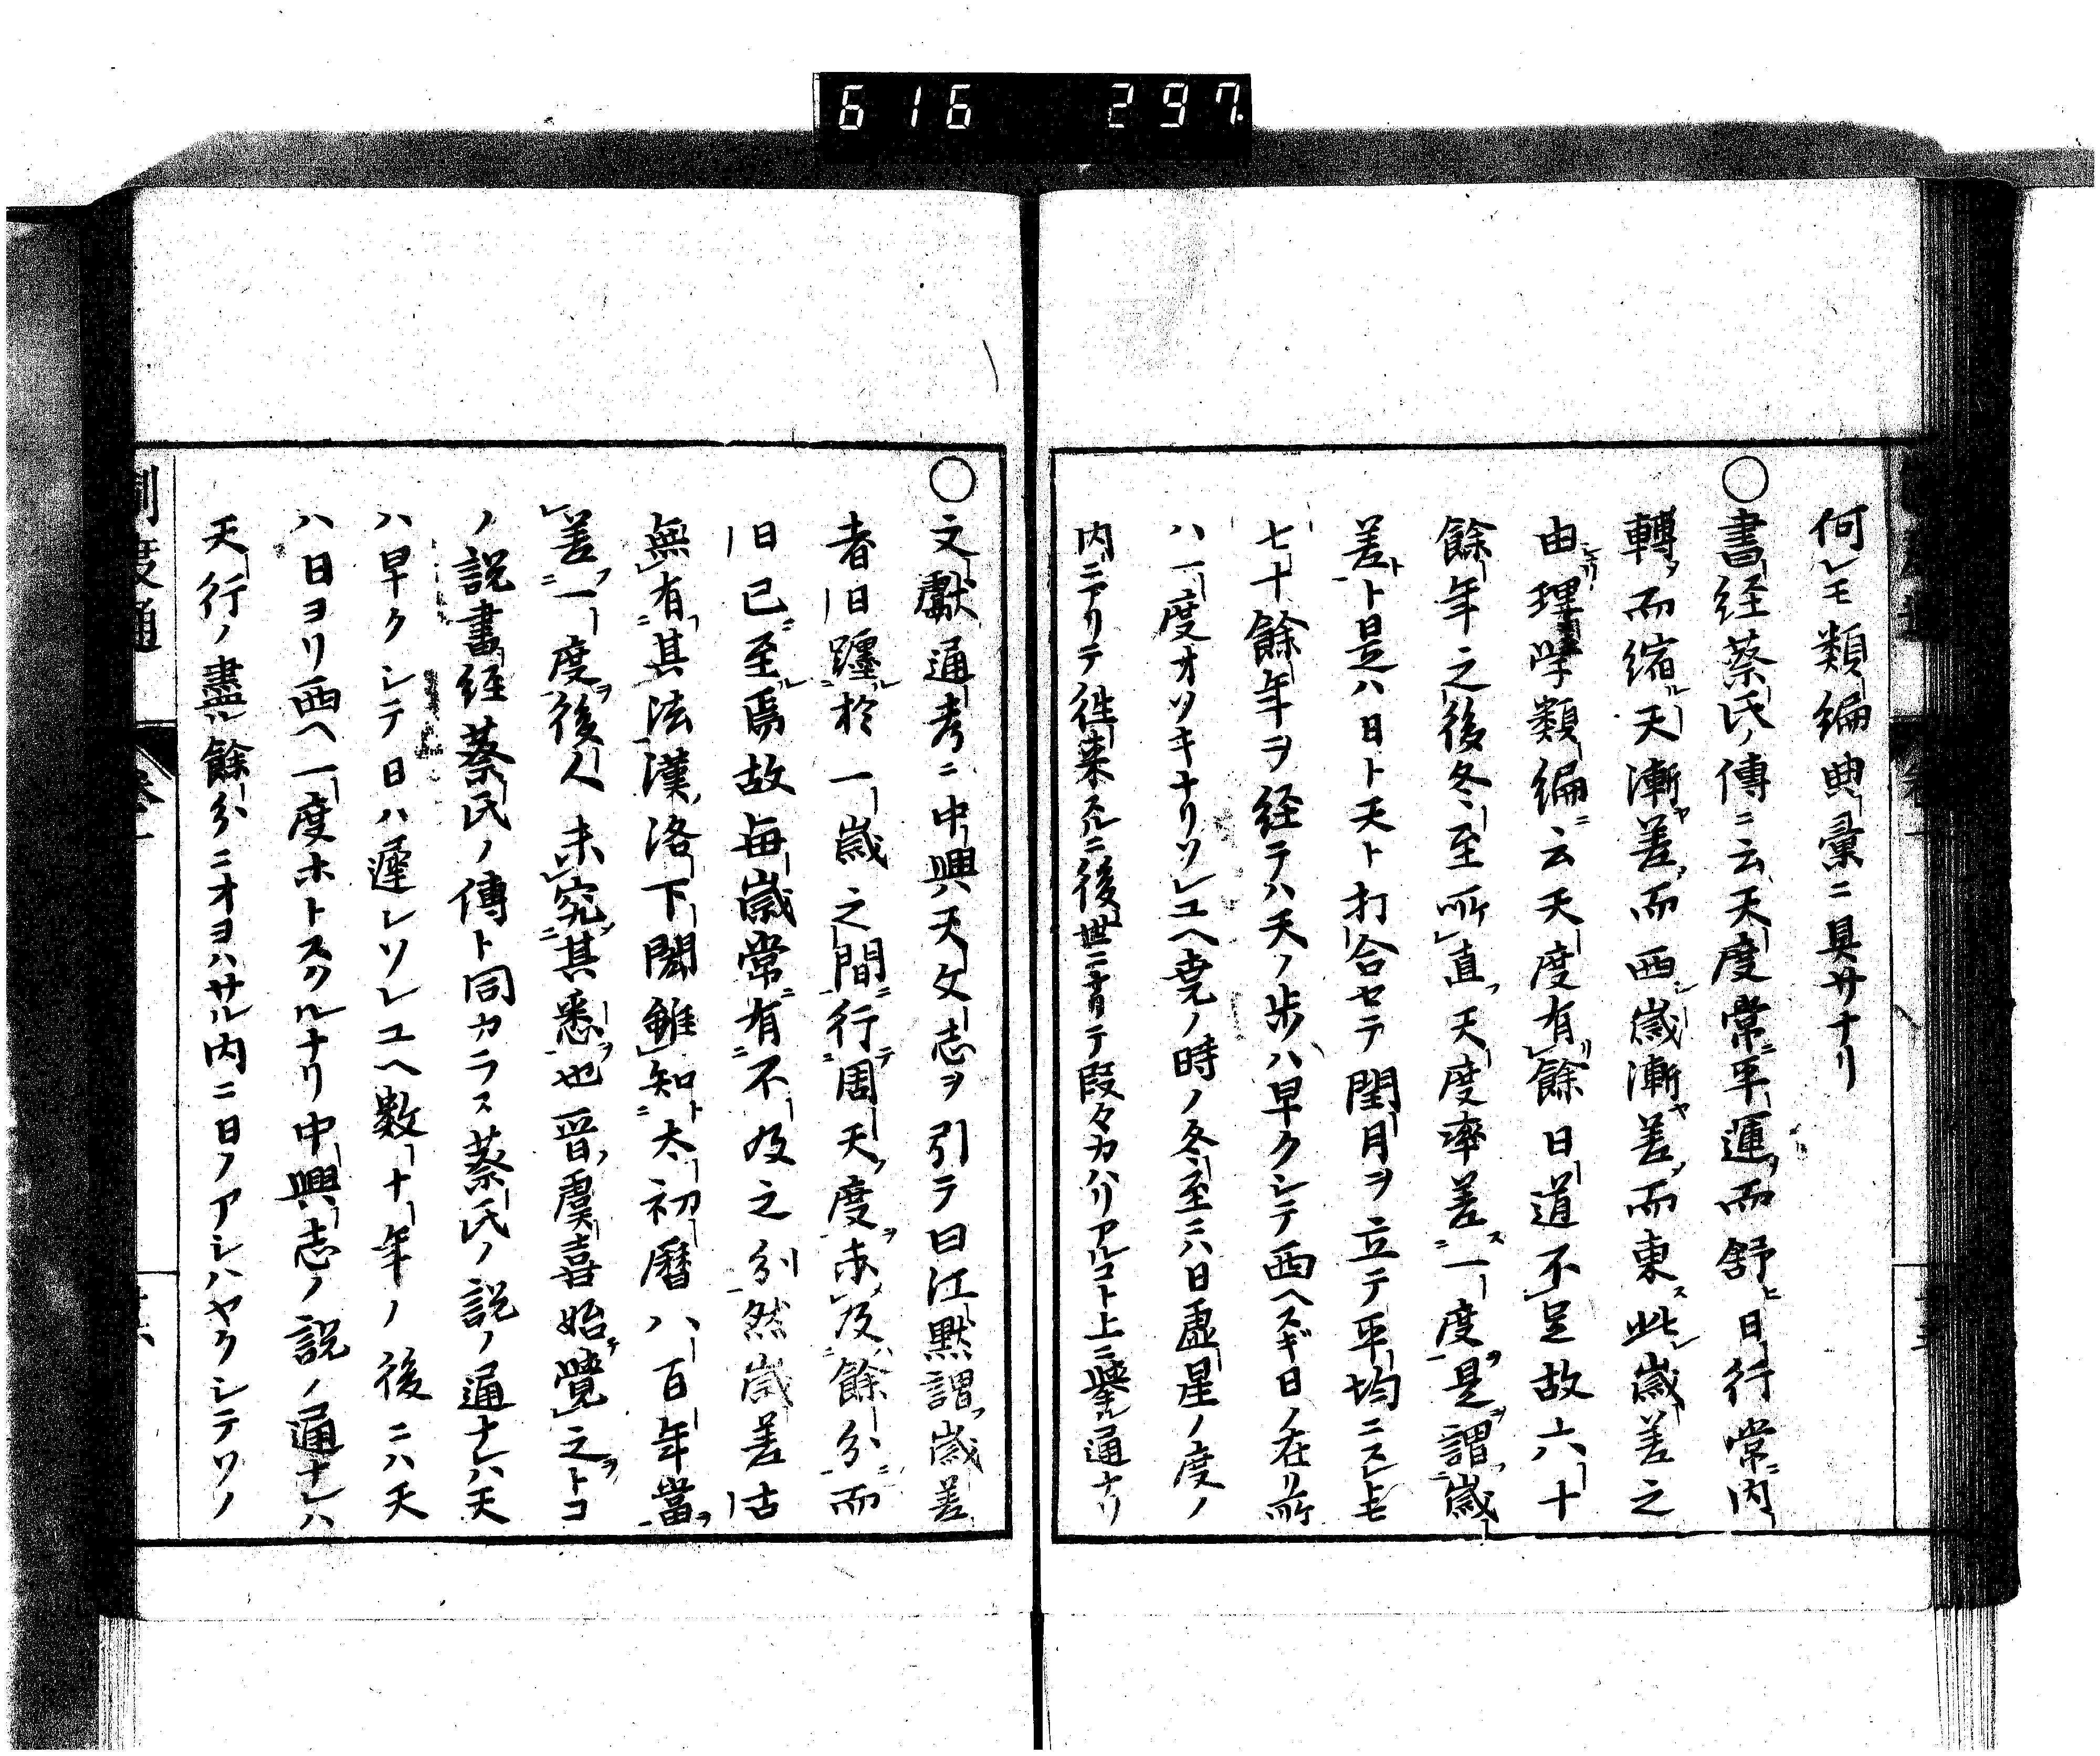 616 297
何レモ類編典彙ニ具サナリ
○書経蔡氏ノ傳ニ云天度常ニ平運ヲ而舒ヒ日行常ニ内
轉ヲ而縮ル天漸ヤ差ヲ而西シ歳漸ヤ差ヲ而東ス此レ歳差之
由ナリ理学類編ニ云天度有リ餘日道不足故六十
餘年之後冬至所直ノ天度率差ス一度ヲ是ヲ謂フ歳
差ト是ハ日ト天ト打合セテ閏月ヲ立テ平均ニスレトモ
七十餘年ヲ経テハ天ノ歩ハ早クシテ西ヘスギ日ノ在リ所
ハ一度オソキナリソレユヘ堯ノ時ノ冬至ニハ日虚星ノ度ノ
内ニアリテ往来スルニ後世ニ至リテ段々カハリアルコト上ニ挙ル通ナリ
○文獻通考ニ中興天文志ヲ引テ曰江黙謂フ歳差
者日躔ル於一歳之間ニ行テ周天ノ度ヲ未及ハ餘分ニ而
日已ニ至ル焉故毎歳常ニ有不及之分然歳差古
無有其法漢ノ洛下閎雖知ト太初暦八百年當ヲ
差フ一度ヲ後人未究其悉ヲ也晋ノ虞喜始テ覺之ヲトコ
ノ説書経蔡氏ノ傳ト同カラス蔡氏ノ説ノ通ナレハ天
ハ早クシテ日ハ遲レソレユヘ数十年ノ後ニハ天
ハ日ヨリ西ヘ一度ホトスクルナリ中興志ノ説ノ通ナレハ
天行ノ盡ル餘分ニオヨハサル内ニ日ノアシハヤクシテソノ
制度通